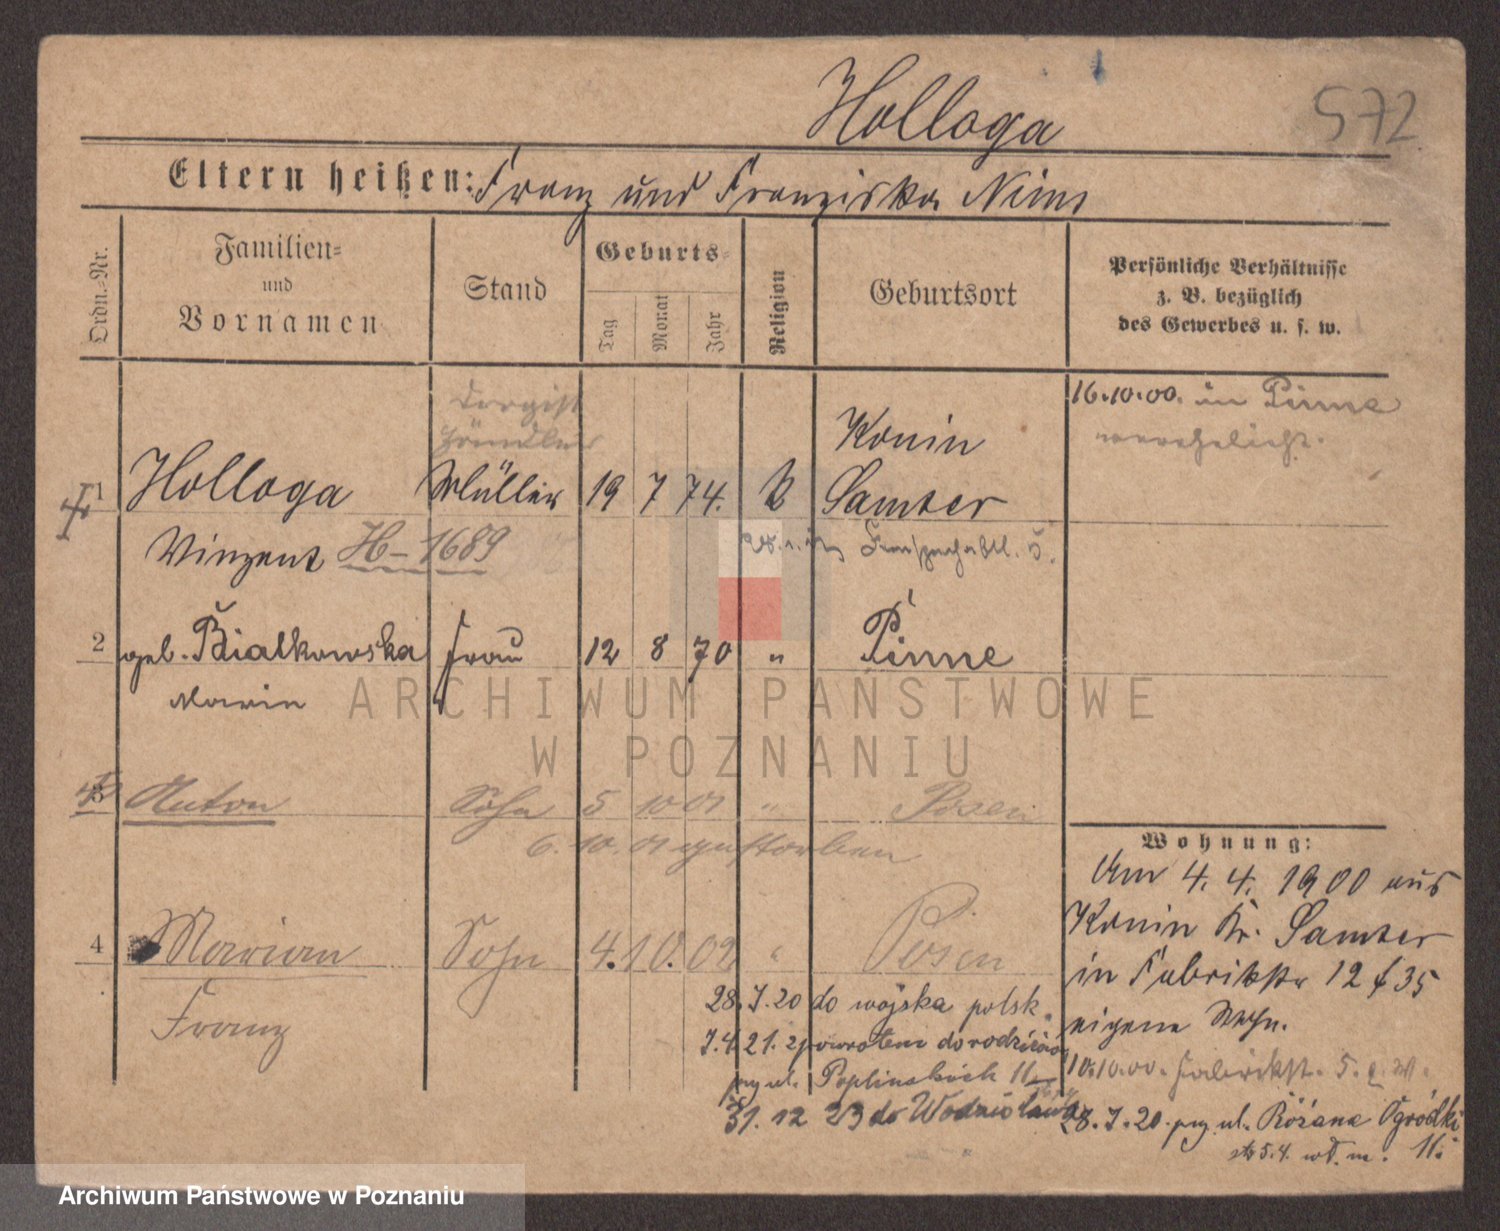 Holloga
572
Eltern heißen: Franz und Franziska Nims
Ordn.-Nr.
Familien-
und
Vornamen
Stand
Geburts-
Tag
Monat
Jahr
Religion
Geburtsort
Persönliche Verhältnisse
z. B. bezüglich
des Gewerbes u. s. w.
16.10.00. in Pinne
verehelicht.
Händler
Konin
1 Holloga Müller 19 7 74. k Samter
Vinzent H-1689
2 geb. Bialkowska Frau 12 8 70 " Pinne
Marie
ARCHIWUM PAŃSTWOWE
W POZNANIU
3 Anton Sohn 5 10 01 " Posen
6.10.01 gestorben
4 Marian Sohn 4.10.02 " Posen
Franz
28.7.20 do wojska polsk.
7.4 21. z powrotem do rodziców
przy ul. 11
31.12 23 do Wodzisławia
Wohnung:
Am 4.4.1900 aus
Konin Kr. Samter
in Fabrikstr 12 b 35
eigene Wohn.
10.10.00. Fabrikst. 5.
28.7.20. przy ul. Różana Ogródki
wł. m. 11.
Archiwum Państwowe w Poznaniu